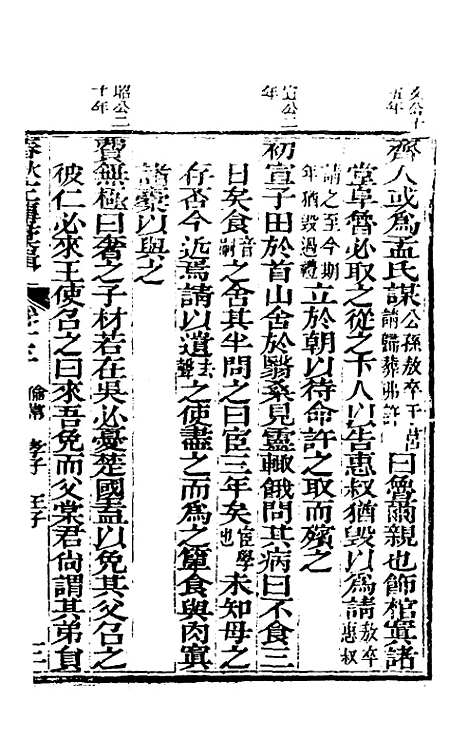 文公十五年
齊人或為孟氏謀公孫敖卒于齊請歸葬弗許曰魯爾親也飾棺寘諸
堂阜魯必取之從之卞人以告惠叔猶毀以為請敖卒惠叔
請之至今期年猶毀過禮立於朝以待命許之取而殯之
宣公二年
初宣子田於首山舍於翳桑見靈輒餓問其病曰不食三
日矣食音嗣之舍其半問之曰宦三年矣宦學也未知母之
存否今近焉請以遺去聲之使盡之而為之簞食與肉寘
諸橐以與之
昭公二十年
費無極曰奢之子材若在吳必憂楚國盍以免其父召之
彼仁必來王使召之曰來吾免而父棠君尚謂其弟員
春秋左傳
卷十三 倫常 孝子 王子